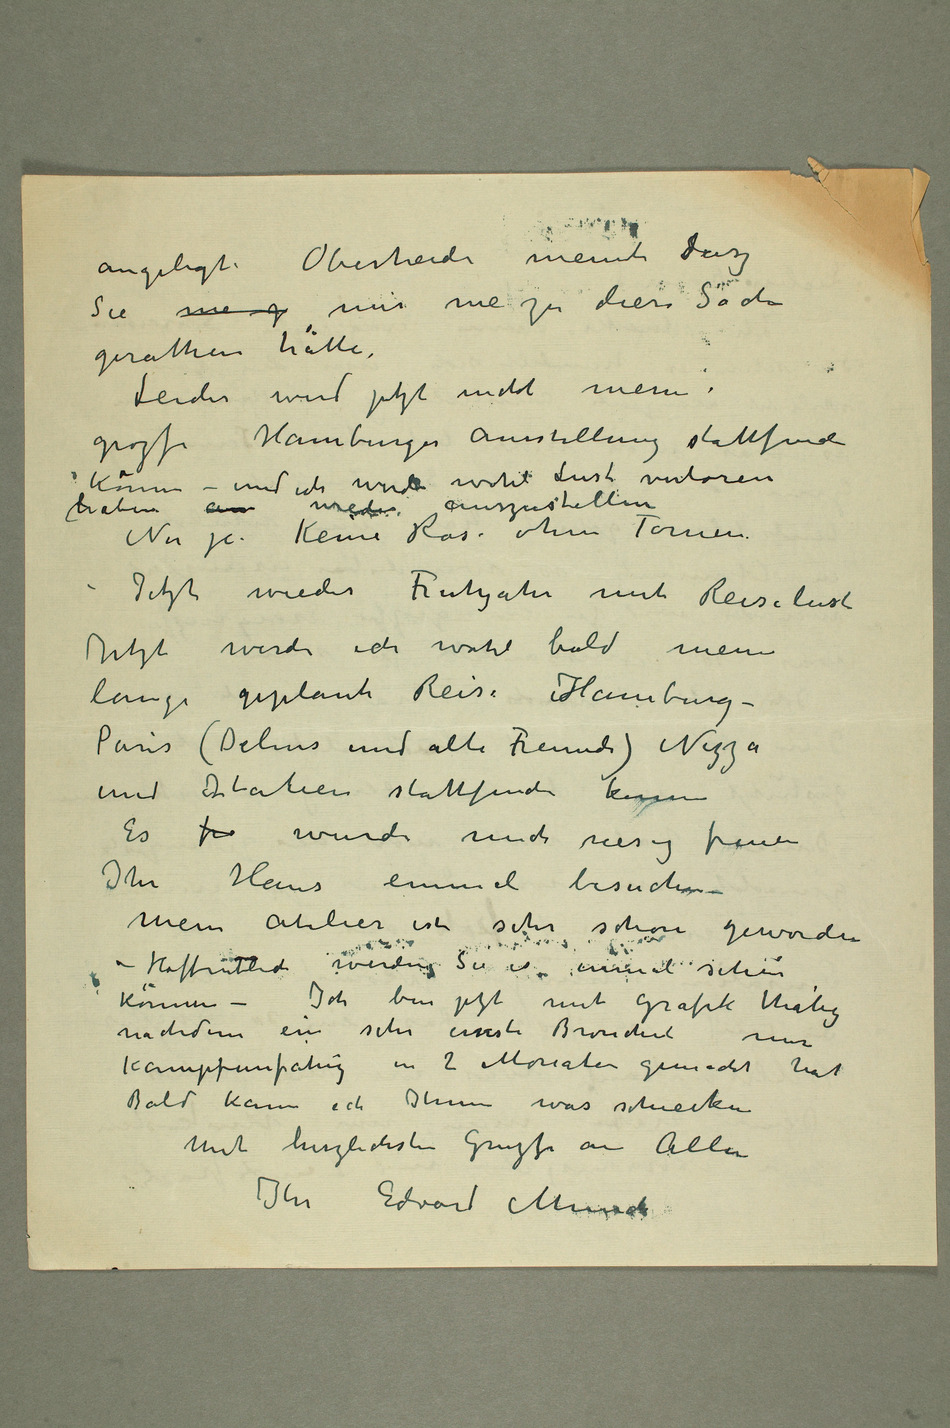 angelegt. Oberheide meinte dasz
Sie me z mir nie zu diese Sache
gerathen hätte.
Leider wird jetzt nicht meine
grozse Hamburger Ausstellung stattfinde
können – und ich werde wohl Lust verloren
haben an wieder auszustellen
Nu ja. Keine Rose ohne Tornen.
– Jetzt wieder Fruhjahr mit Reiselust
Jetzt werde ich wohl bald meine
lange geplante Reise Hamburg –
Paris (Delius und alte Freunde) Nizza
und Italien stattfinde können
Es fr wurde mich riesig freuen
Ihr Haus einmal besuchen –
Mein Atelier ist sehr schön geworden
– Hoffentlich werden Sie es einmal sehen
können – Ich bin jetzt mit Grafik thätig
nachdem ein sehr ernste Bronchit mir
kampfunfähig in 2 Monaten gemacht hat
Bald kann ich Ihnen was schicken
Mit herzlichsten Gruzse an Allen
Ihr Edvard Munch